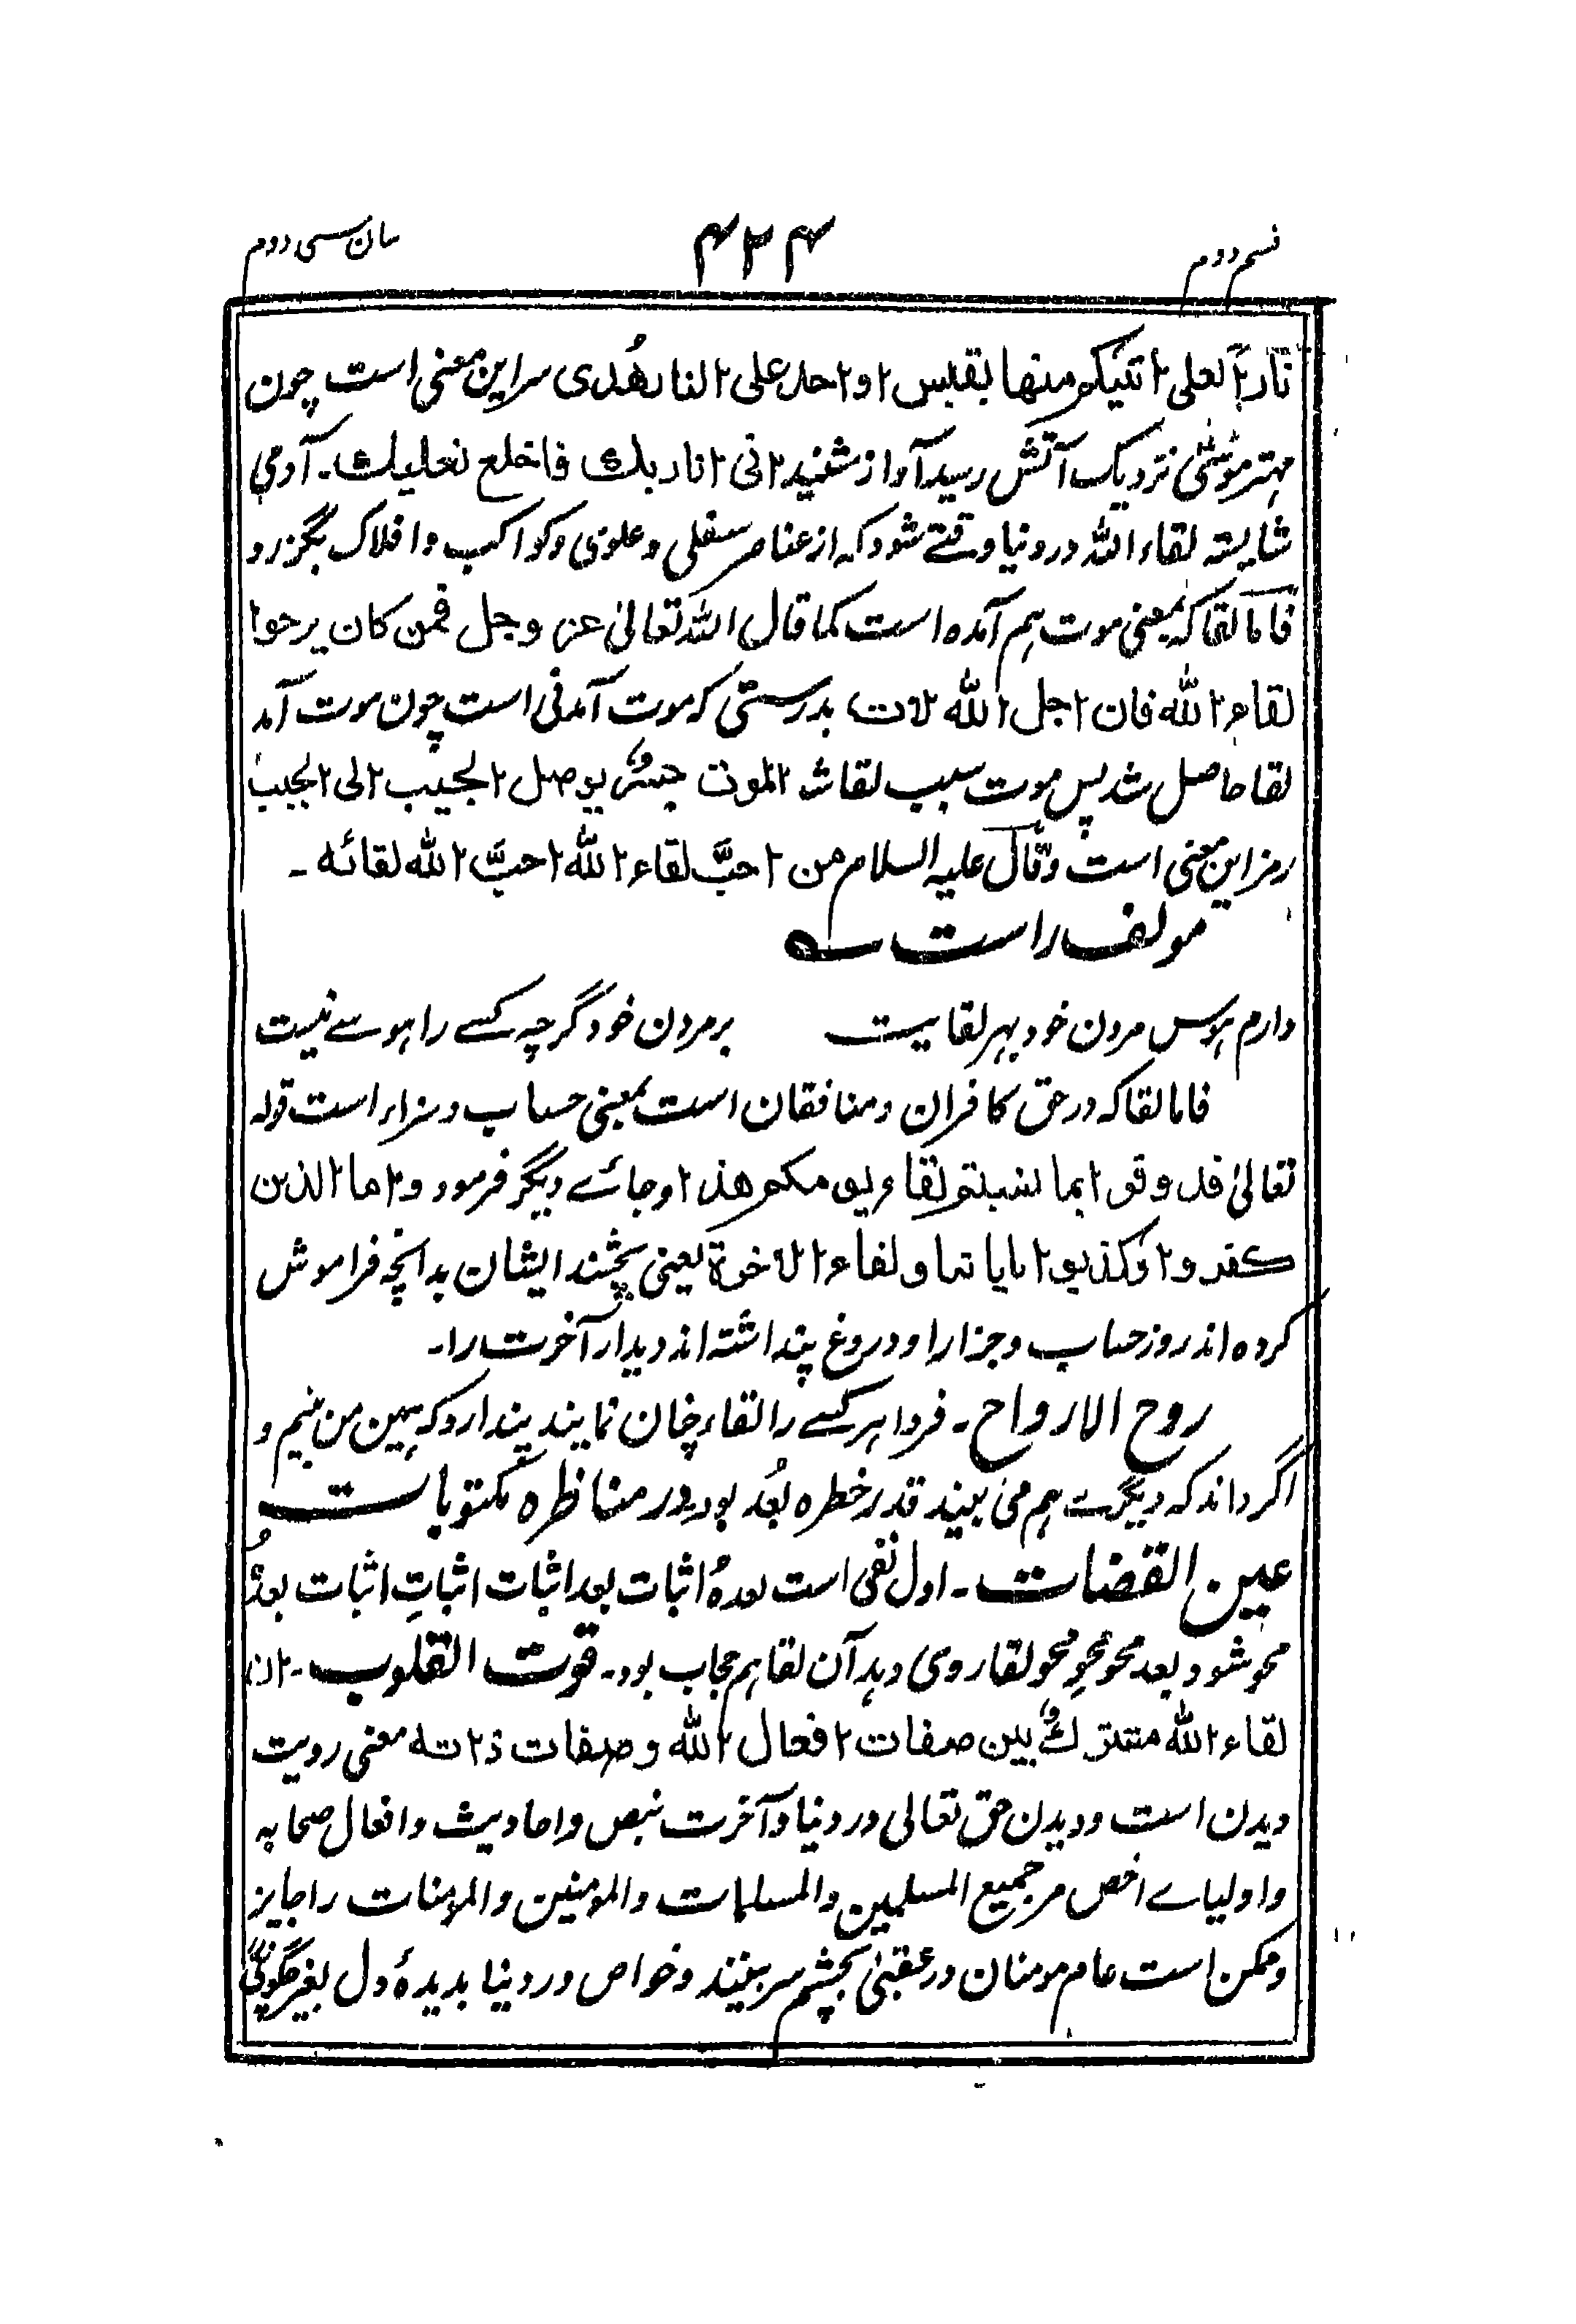 قسم دوم ۴۲۴ بیان سی دوم
نارا لعلی اتیکم منها بقبس او اجد علی النار هُدی سر این معنی است چون
مهتر موسیٰ نزدیک آتش رسید آواز شنید انی انا ربك فاخلع نعلیك۔ آدمی
شایسته لقاء اللہ در دنیا وقتے شود که از عناصر سفلی و علوی و کواکب و افلاک بگزرد
فاما لقا که بمعنی موت هم آمده است کما قال اللہ تعالیٰ عز و جل فمن کان یرجوا
لقاء الله فان اجل الله لات بدرستی که موت آمدنی است چون موت آمد
لقا حاصل شد پس موت سبب لقا شد الموت جسرٌ یوصل الحبیب الی الحبیب
رمز این معنی است وقال علیہ السلام من احبَّ لقاء الله احبَّ الله لقائه ۔
مولف راست ـــه
دارم ہوس مردن خود بہر لقایت بر مردن خود گرچہ کسے را ہوسے نیست
فاما لقا که در حق کافران و منافقان است بمعنی حساب و سزاء است قوله
تعالیٰ فذوقوا بما نسیتم لقاء یومکم هذا و جائے دیگر فرمود و اما الذین
کفروا وکذبوا بایاتنا و لقاء الاخرة یعنی بچشند ایشان بدانچہ فراموش
کرده اند روز حساب و جزا را و دروغ پنداشته اند دیدار آخرت را۔
روح الارواح ۔ فردا ہر کسے را لقاء چنان نمایند پندارد کہ ہمین من بینم و
اگر داند کہ دیگرے ہم می بیند قدر خطره بُعد بود در مناظره مکتوبات
عین القضات ۔ اول نفی است بعدهٗ اثبات بعد اثبات اثباتِ اثبات بعدهٗ
محو شود بعد محو محوِ محو لقا روی دہد آن لقا ہم حجاب بود۔ قوت القلوب ۔ ان
لقاء الله مشتركٌ بین صفات افعال الله و صفات ذاته معنی رویت
دیدن است و دیدن حق تعالی در دنیا و آخرت بنص و احادیث و افعال صحابہ
و اولیاے اخص مر جمیع المسلمین و المسلمات و المومنین و المومنات را جایز
و ممکن است عام مومنان در عقبیٰ بچشم سر بینند و خواص در دنیا بدیدهٔ دل بغیر چگونگی